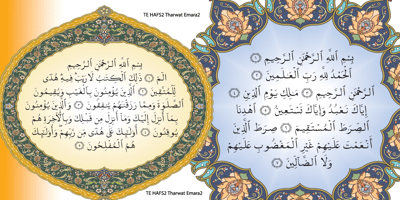 TE HAFS2 Tharwat Emara2
بِسْمِ ٱللَّهِ ٱلرَّحْمَٰنِ ٱلرَّحِيمِ ۝١
ٱلْحَمْدُ لِلَّهِ رَبِّ ٱلْعَٰلَمِينَ ۝٢
ٱلرَّحْمَٰنِ ٱلرَّحِيمِ ۝٣ مَٰلِكِ يَوْمِ ٱلدِّينِ ۝٤
إِيَّاكَ نَعْبُدُ وَإِيَّاكَ نَسْتَعِينُ ۝٥ ٱهْدِنَا
ٱلصِّرَٰطَ ٱلْمُسْتَقِيمَ ۝٦ صِرَٰطَ ٱلَّذِينَ
أَنْعَمْتَ عَلَيْهِمْ غَيْرِ ٱلْمَغْضُوبِ عَلَيْهِمْ
وَلَا ٱلضَّآلِّينَ ۝٧
بِسْمِ ٱللَّهِ ٱلرَّحْمَٰنِ ٱلرَّحِيمِ
الٓمٓ ۝١ ذَٰلِكَ ٱلْكِتَٰبُ لَا رَيْبَ فِيهِ هُدًى
لِّلْمُتَّقِينَ ۝٢ ٱلَّذِينَ يُؤْمِنُونَ بِٱلْغَيْبِ وَيُقِيمُونَ
ٱلصَّلَوٰةَ وَمِمَّا رَزَقْنَٰهُمْ يُنفِقُونَ ۝٣ وَٱلَّذِينَ يُؤْمِنُونَ
بِمَآ أُنزِلَ إِلَيْكَ وَمَآ أُنزِلَ مِن قَبْلِكَ وَبِٱلْأٓخِرَةِ هُمْ
يُوقِنُونَ ۝٤ أُو۟لَٰٓئِكَ عَلَىٰ هُدًى مِّن رَّبِّهِمْ وَأُو۟لَٰٓئِكَ
هُمُ ٱلْمُفْلِحُونَ ۝٥
TE HAFS2 Tharwat Emara2